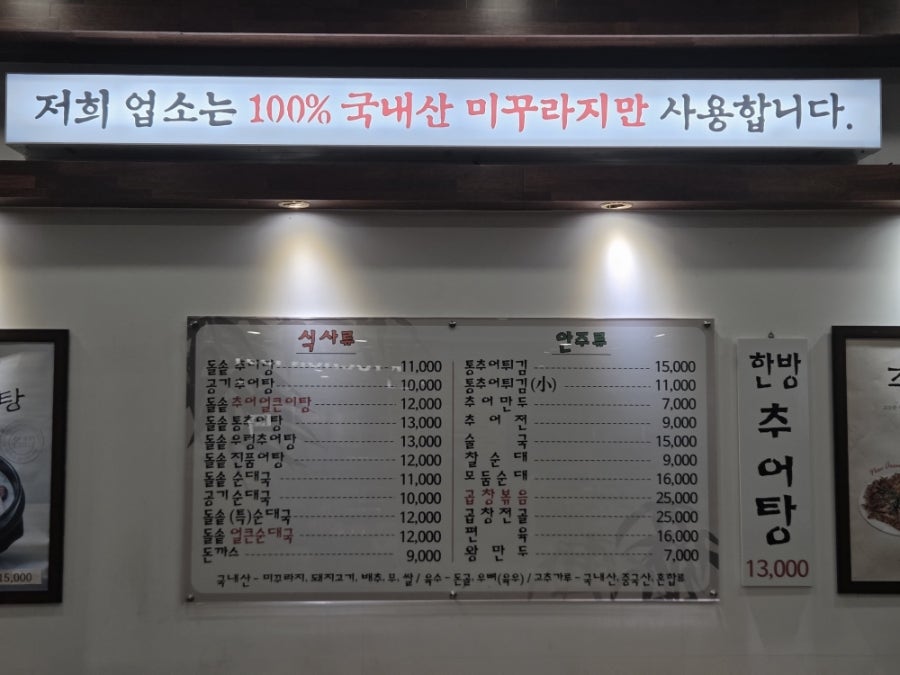 저희 업소는 100% 국내산 미꾸라지만 사용합니다.
식사류
돌솥 추어탕 11,000
공기 추어탕 10,000
돌솥 추어얼큰이탕 12,000
돌솥 통추어탕 13,000
돌솥 우렁추어탕 13,000
돌솥 진품어탕 12,000
돌솥 순대국 11,000
공기 순대국 10,000
돌솥 (특)순대국 12,000
돌솥 얼큰순대국 12,000
돈까스 9,000
안주류
통추어튀김 15,000
통추어튀김(小) 11,000
추어만두 7,000
추어전 9,000
술국 15,000
찰순대 9,000
모둠순대 16,000
곱창볶음 25,000
곱창전골 25,000
편육 16,000
왕만두 7,000
국내산 - 미꾸라지, 돼지고기, 배추, 무, 쌀 / 육수 - 돈골, 우뼈(육우) / 고추가루 - 국내산, 중국산, 혼합류
한방
추
어
탕
13,000
탕
15,000